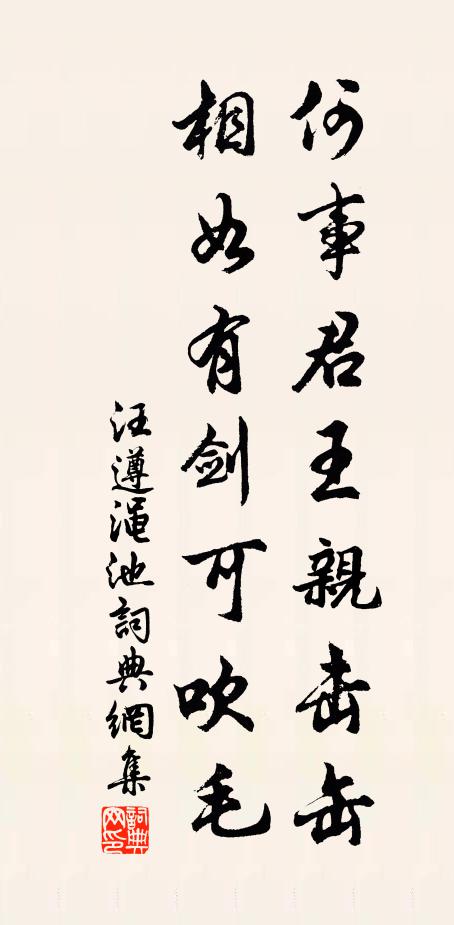 何事君王親击缶
相如有剑可吹毛
汪遵渑池詞典網集
詞典網印